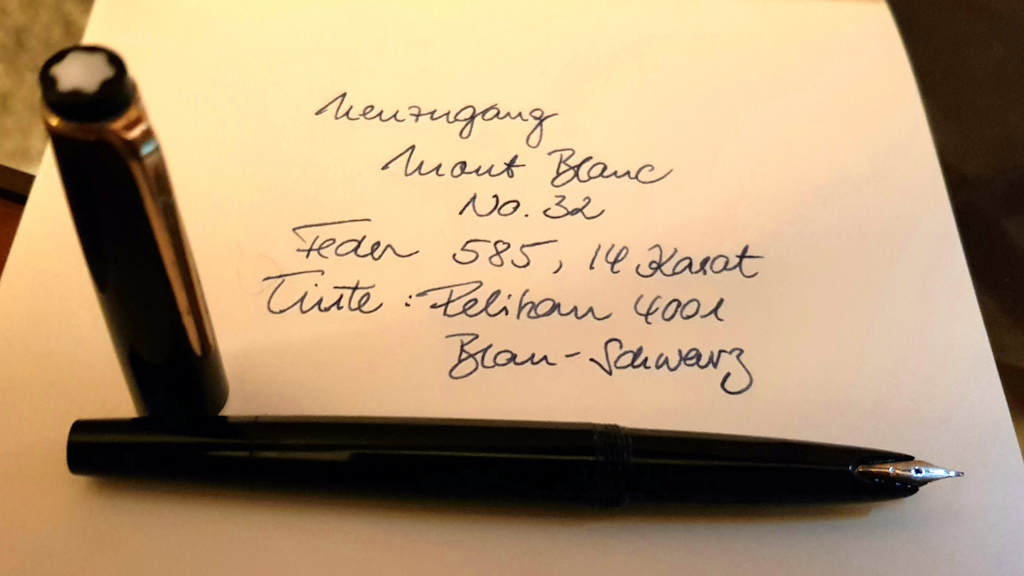 Neuzugang
Mont Blanc
No. 32
Feder 585, 14 Karat
Tinte : Pelikan 4001
Blau-Schwarz